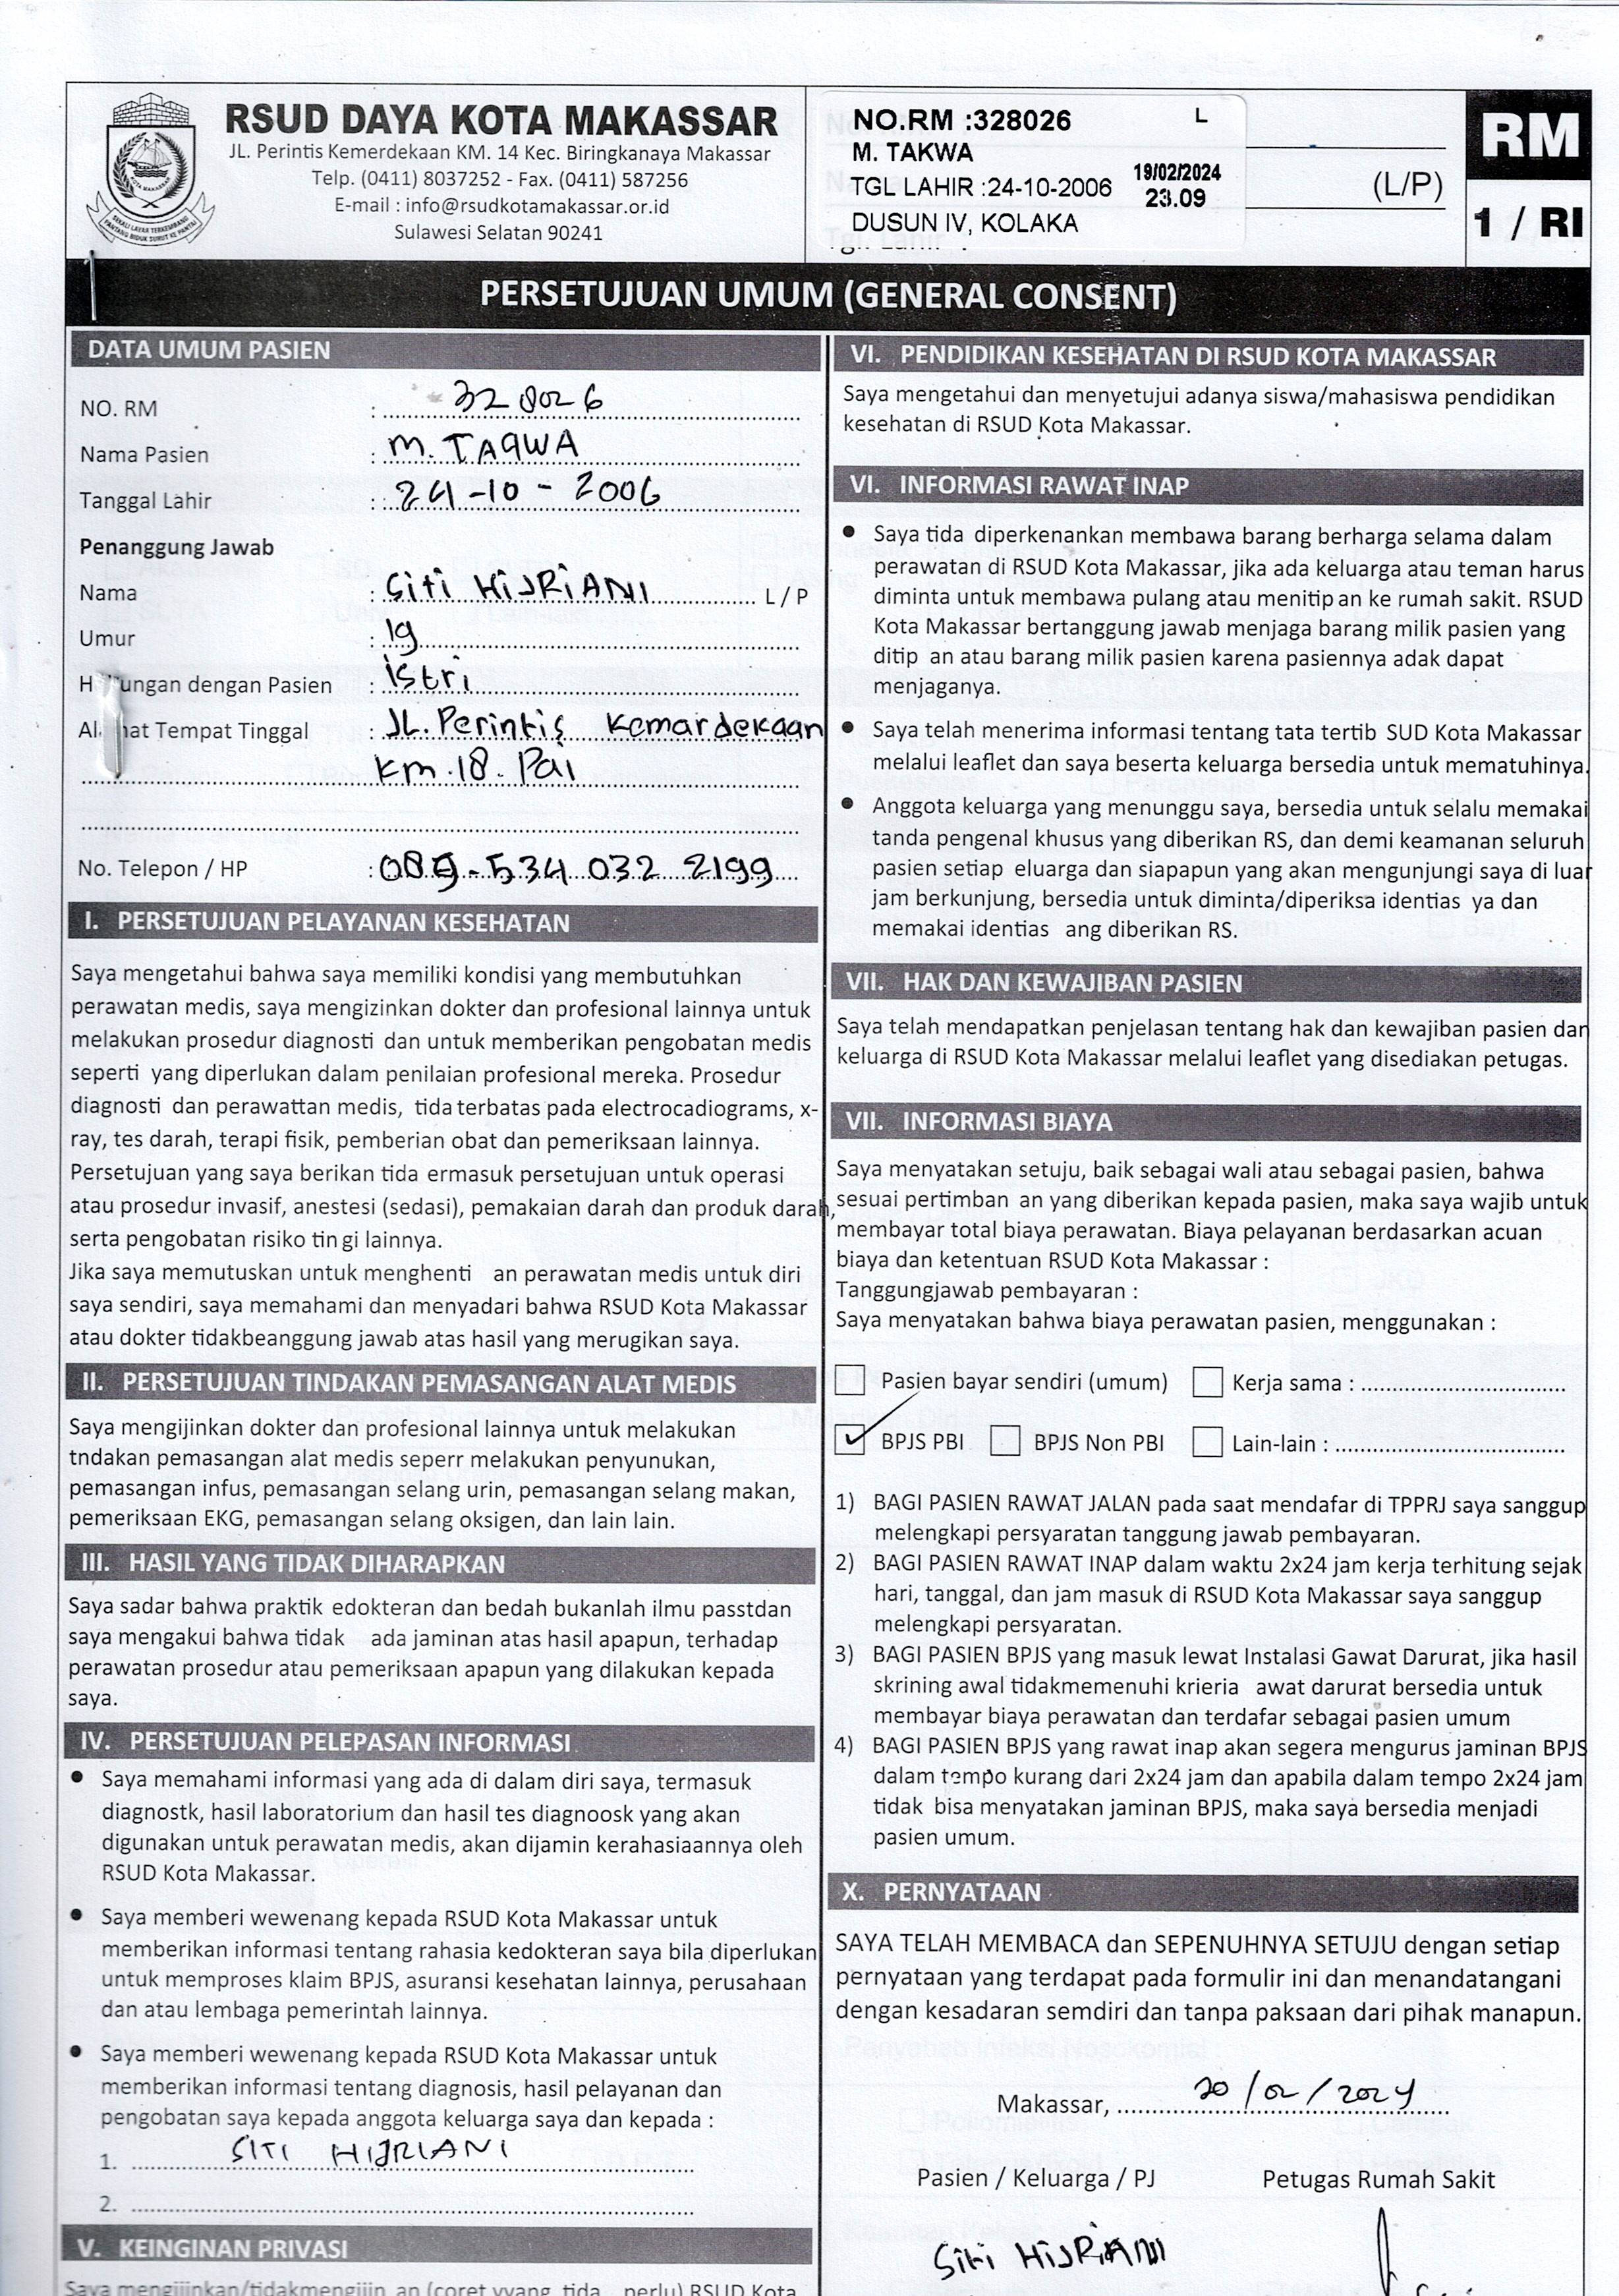 RSUD DAYA KOTA MAKASSAR
JL. Perintis Kemerdekaan KM. 14 Kec. Biringkanaya Makassar
Telp. (0411) 8037252 - Fax. (0411) 587256
E-mail : info@rsudkotamakassar.or.id
Sulawesi Selatan 90241
NO.RM :328026 L
M. TAKWA
TGL LAHIR :24-10-2006 19/02/2024 23.09
DUSUN IV, KOLAKA
(L/P)
RM
1 / RI
PERSETUJUAN UMUM (GENERAL CONSENT)
DATA UMUM PASIEN
NO. RM : 328026
Nama Pasien : M. TAQWA
Tanggal Lahir : 24-10-2006
Penanggung Jawab
Nama : Siti HIJRIANI L / P
Umur : 19
H ungan dengan Pasien : istri
Al at Tempat Tinggal : JL. Perintis Kemardekaan
km.18. Pai
No. Telepon / HP : 089-534 032 2199
I. PERSETUJUAN PELAYANAN KESEHATAN
Saya mengetahui bahwa saya memiliki kondisi yang membutuhkan
perawatan medis, saya mengizinkan dokter dan profesional lainnya untuk
melakukan prosedur diagnosti dan untuk memberikan pengobatan medis
seperti yang diperlukan dalam penilaian profesional mereka. Prosedur
diagnosti dan perawattan medis, tida terbatas pada electrocadiograms, x-
ray, tes darah, terapi fisik, pemberian obat dan pemeriksaan lainnya.
Persetujuan yang saya berikan tida ermasuk persetujuan untuk operasi
atau prosedur invasif, anestesi (sedasi), pemakaian darah dan produk darah,
serta pengobatan risiko tin gi lainnya.
Jika saya memutuskan untuk menghenti an perawatan medis untuk diri
saya sendiri, saya memahami dan menyadari bahwa RSUD Kota Makassar
atau dokter tidakbeanggung jawab atas hasil yang merugikan saya.
II. PERSETUJUAN TINDAKAN PEMASANGAN ALAT MEDIS
Saya mengijinkan dokter dan profesional lainnya untuk melakukan
tndakan pemasangan alat medis seperr melakukan penyunukan,
pemasangan infus, pemasangan selang urin, pemasangan selang makan,
pemeriksaan EKG, pemasangan selang oksigen, dan lain lain.
III. HASIL YANG TIDAK DIHARAPKAN
Saya sadar bahwa praktik edokteran dan bedah bukanlah ilmu passtdan
saya mengakui bahwa tidak ada jaminan atas hasil apapun, terhadap
perawatan prosedur atau pemeriksaan apapun yang dilakukan kepada
saya.
IV. PERSETUJUAN PELEPASAN INFORMASI
• Saya memahami informasi yang ada di dalam diri saya, termasuk
diagnostk, hasil laboratorium dan hasil tes diagnoosk yang akan
digunakan untuk perawatan medis, akan dijamin kerahasiaannya oleh
RSUD Kota Makassar.
• Saya memberi wewenang kepada RSUD Kota Makassar untuk
memberikan informasi tentang rahasia kedokteran saya bila diperlukan
untuk memproses klaim BPJS, asuransi kesehatan lainnya, perusahaan
dan atau lembaga pemerintah lainnya.
• Saya memberi wewenang kepada RSUD Kota Makassar untuk
memberikan informasi tentang diagnosis, hasil pelayanan dan
pengobatan saya kepada anggota keluarga saya dan kepada :
1. SITI HIJRIANI
2.
V. KEINGINAN PRIVASI
Saya mengijinkan/tidakmengijin an (coret yyang tida perlu) RSUD Kota
VI. PENDIDIKAN KESEHATAN DI RSUD KOTA MAKASSAR
Saya mengetahui dan menyetujui adanya siswa/mahasiswa pendidikan
kesehatan di RSUD Kota Makassar.
VI. INFORMASI RAWAT INAP
• Saya tida diperkenankan membawa barang berharga selama dalam
perawatan di RSUD Kota Makassar, jika ada keluarga atau teman harus
diminta untuk membawa pulang atau menitip an ke rumah sakit. RSUD
Kota Makassar bertanggung jawab menjaga barang milik pasien yang
ditip an atau barang milik pasien karena pasiennya adak dapat
menjaganya.
• Saya telah menerima informasi tentang tata tertib SUD Kota Makassar
melalui leaflet dan saya beserta keluarga bersedia untuk mematuhinya.
• Anggota keluarga yang menunggu saya, bersedia untuk selalu memakai
tanda pengenal khusus yang diberikan RS, dan demi keamanan seluruh
pasien setiap eluarga dan siapapun yang akan mengunjungi saya di luar
jam berkunjung, bersedia untuk diminta/diperiksa identias ya dan
memakai identias ang diberikan RS.
VII. HAK DAN KEWAJIBAN PASIEN
Saya telah mendapatkan penjelasan tentang hak dan kewajiban pasien dan
keluarga di RSUD Kota Makassar melalui leaflet yang disediakan petugas.
VII. INFORMASI BIAYA
Saya menyatakan setuju, baik sebagai wali atau sebagai pasien, bahwa
sesuai pertimban an yang diberikan kepada pasien, maka saya wajib untuk
membayar total biaya perawatan. Biaya pelayanan berdasarkan acuan
biaya dan ketentuan RSUD Kota Makassar :
Tanggungjawab pembayaran :
Saya menyatakan bahwa biaya perawatan pasien, menggunakan :
☐ Pasien bayar sendiri (umum) ☐ Kerja sama :
☑ BPJS PBI ☐ BPJS Non PBI ☐ Lain-lain :
1) BAGI PASIEN RAWAT JALAN pada saat mendafar di TPPRJ saya sanggup
melengkapi persyaratan tanggung jawab pembayaran.
2) BAGI PASIEN RAWAT INAP dalam waktu 2x24 jam kerja terhitung sejak
hari, tanggal, dan jam masuk di RSUD Kota Makassar saya sanggup
melengkapi persyaratan.
3) BAGI PASIEN BPJS yang masuk lewat Instalasi Gawat Darurat, jika hasil
skrining awal tidakmemenuhi krieria awat darurat bersedia untuk
membayar biaya perawatan dan terdafar sebagai pasien umum
4) BAGI PASIEN BPJS yang rawat inap akan segera mengurus jaminan BPJS
dalam tempo kurang dari 2x24 jam dan apabila dalam tempo 2x24 jam
tidak bisa menyatakan jaminan BPJS, maka saya bersedia menjadi
pasien umum.
X. PERNYATAAN
SAYA TELAH MEMBACA dan SEPENUHNYA SETUJU dengan setiap
pernyataan yang terdapat pada formulir ini dan menandatangani
dengan kesadaran semdiri dan tanpa paksaan dari pihak manapun.
Makassar, 20/02/2024
Pasien / Keluarga / PJ Petugas Rumah Sakit
Siti HIJRIANI